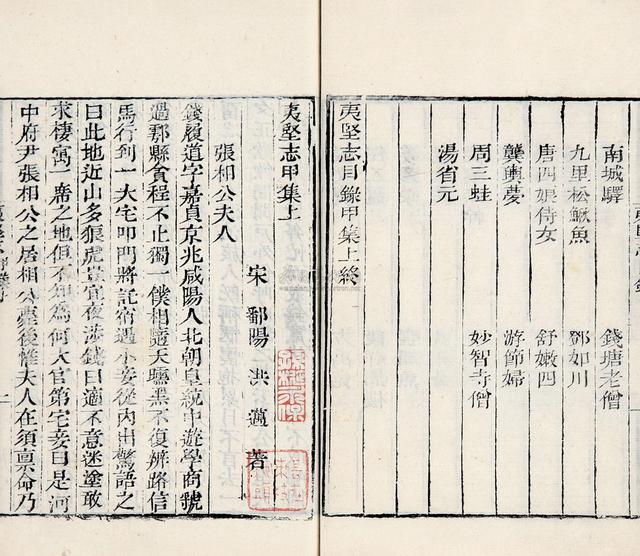 南城驛 錢塘老僧
九里松鰍魚 鄧如川
唐四娘侍女 舒嫩四
龔輿夢 游節婦
周三蛙 妙智寺僧
湯省元
夷堅志目錄甲集上終
夷堅志甲集上
宋 鄱陽 洪邁 著
張相公夫人
錢履道字嘉貞京兆咸陽人北朝皇統中遊學商虢
過鄠縣貪程不止獨一僕相隨天曛黑不復辨路信
馬行到一大宅叩門將託宿遇小妾從內出驚語之
曰此地近山多狼虎豈宜夜涉錢曰適不意迷塗敢
求棲寓一席之地但不知為何大官第宅妾曰是河
中府尹張相公之居相公薨後惟夫人在須稟命乃